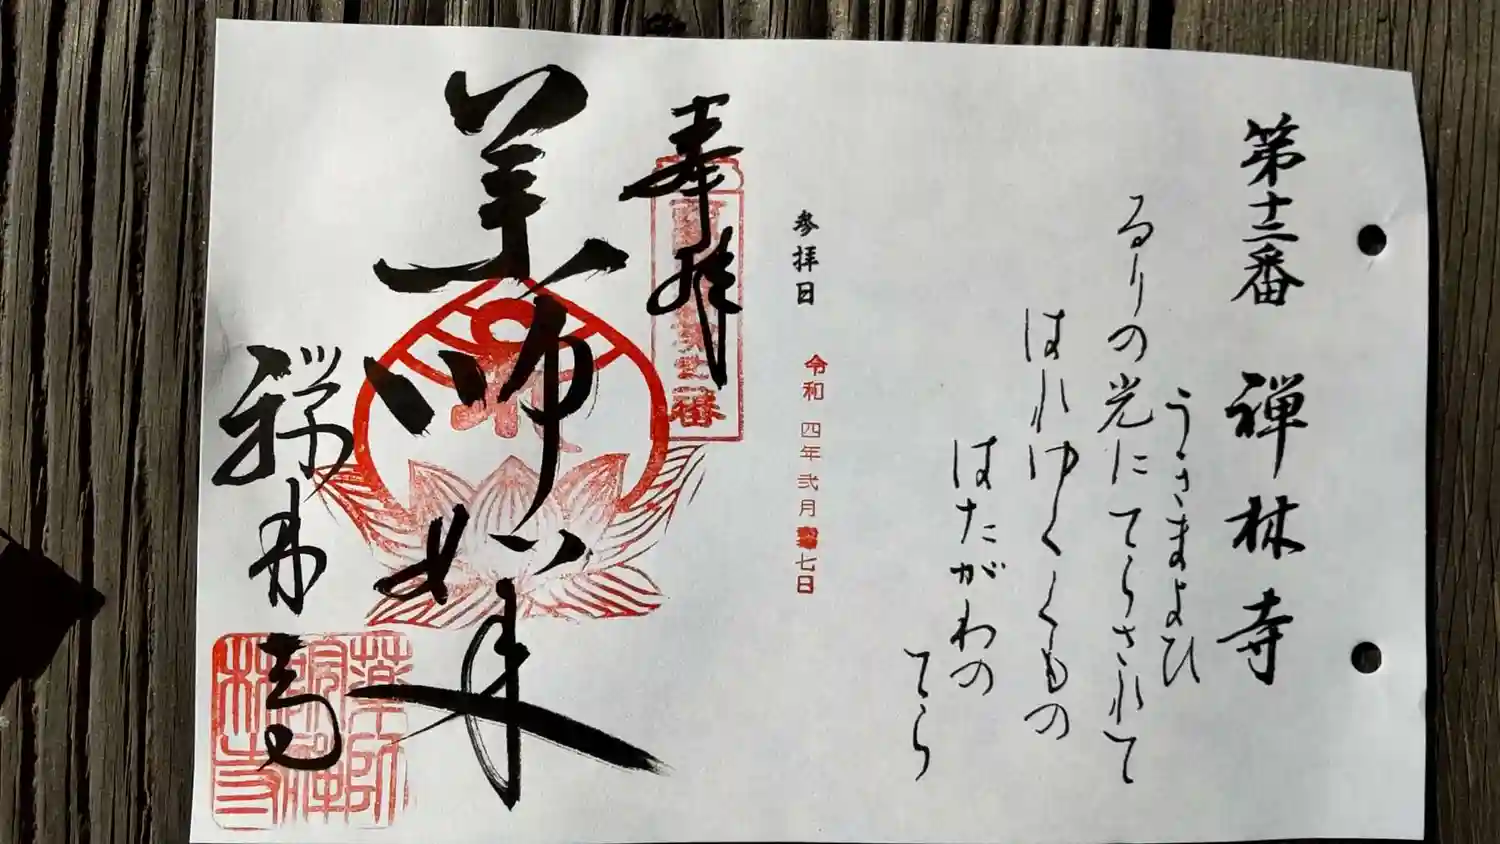 第十二番 禅林寺
るりの光にてらされて
はれゆくくもの
はたがわの
てら
参拝日
令和 四年 弐月 七日
奉拝
薬師如来
禅林寺